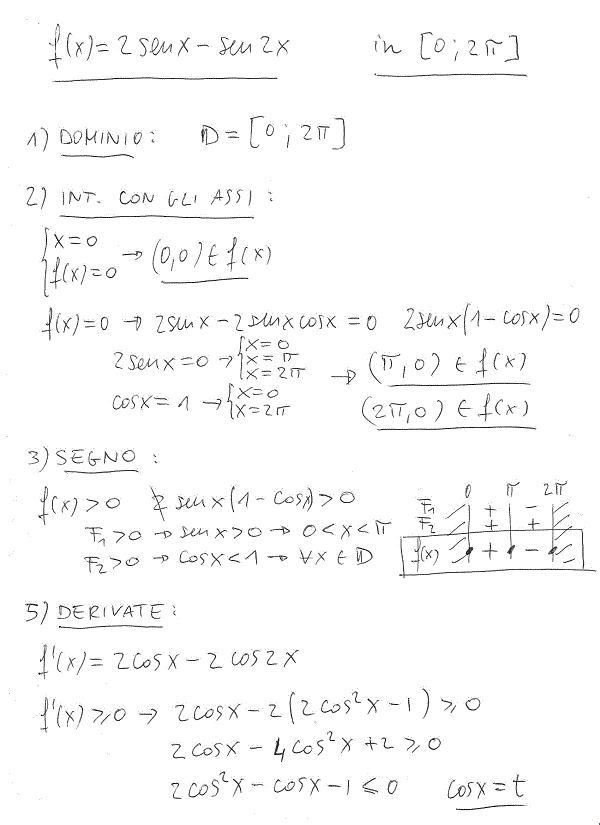 f(x)=2senx-sen2x in [0;2π]
1) DOMINIO: D=[0;2π]
2) INT. CON GLI ASSI:
{x=0 f(x)=0 → (0,0) ∈ f(x)
f(x)=0 → 2senx-2senxcosx=0 2senx(1-cosx)=0
2senx=0 → {x=0 x=π x=2π → (π,0) ∈ f(x)
cosx=1 → {x=0 x=2π (2π,0) ∈ f(x)
3) SEGNO:
f(x)>0 2senx(1-cosx)>0
F₁>0 → senx>0 → 0<x<π
F₂>0 → cosx<1 → ∀x ∈ D
0 π 2π
F₁ + -
F₂ + +
f(x) + -
5) DERIVATE:
f'(x)=2cosx-2cos2x
f'(x)≥0 → 2cosx-2(2cos²x-1)≥0
2cosx-4cos²x+2≥0
2cos²x-cosx-1≤0 cosx=t